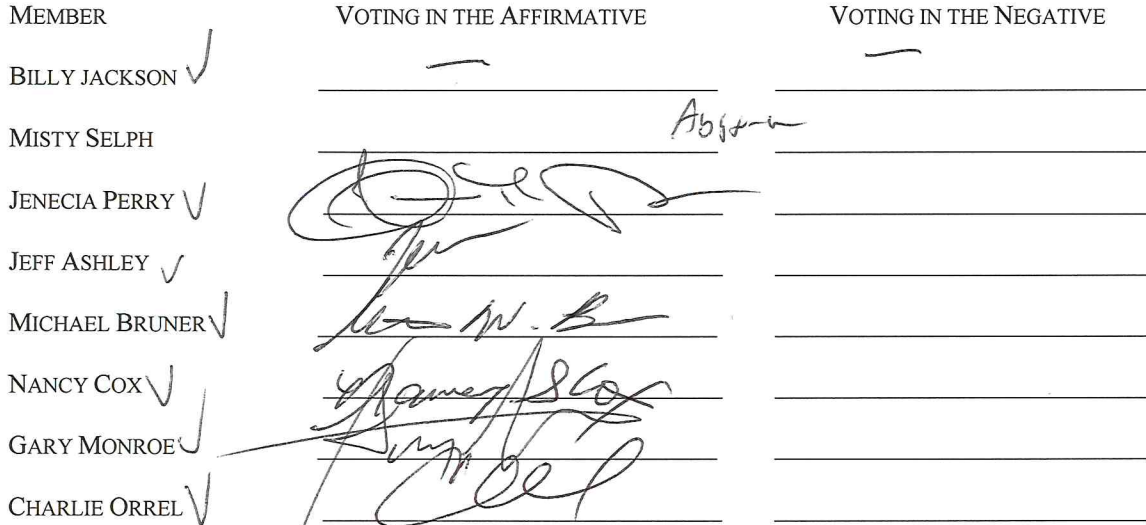 MEMBER VOTING IN THE AFFIRMATIVE VOTING IN THE NEGATIVE
BILLY JACKSON ✓ — —
MISTY SELPH
JENECIA PERRY ✓
JEFF ASHLEY ✓
MICHAEL BRUNER ✓
NANCY COX ✓ Nancy S Cox
GARY MONROE ✓
CHARLIE ORREL ✓